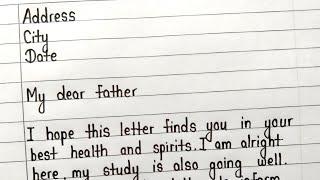 Address
City
Date
My dear father
I hope this letter finds you in your
best health and spirits. I am alright
here, my study is also going well.